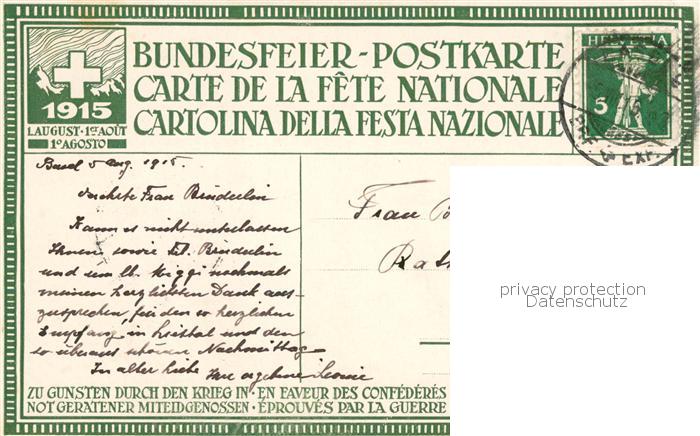 BUNDESFEIER-POSTKARTE
CARTE DE LA FÊTE NATIONALE
CARTOLINA DELLA FESTA NAZIONALE
1915
1.AUGUST·1ER AOÛT
1O AGOSTO
HELVETIA
5
EXP.
Basel 5 Aug. 1915.
Frau Brüderlin
Kann es nicht unterlassen
Ihnen, sowie Frl. Brüderlin
und dem lb. Miggi nochmals
meinen herzlichsten Dank aus-
zusprechen, für den so herzlichen
Empfang in Liestal und den
so überaus schönen Nachmittag.
In alter Liebe Ihre ergebene Leonie
Frau
privacy protection
Datenschutz
ZU GUNSTEN DURCH DEN KRIEG IN· EN FAVEUR DES CONFÉDÉRÉS
NOT GERATENER MITEIDGENOSSEN · ÉPROUVÉS PAR LA GUERRE